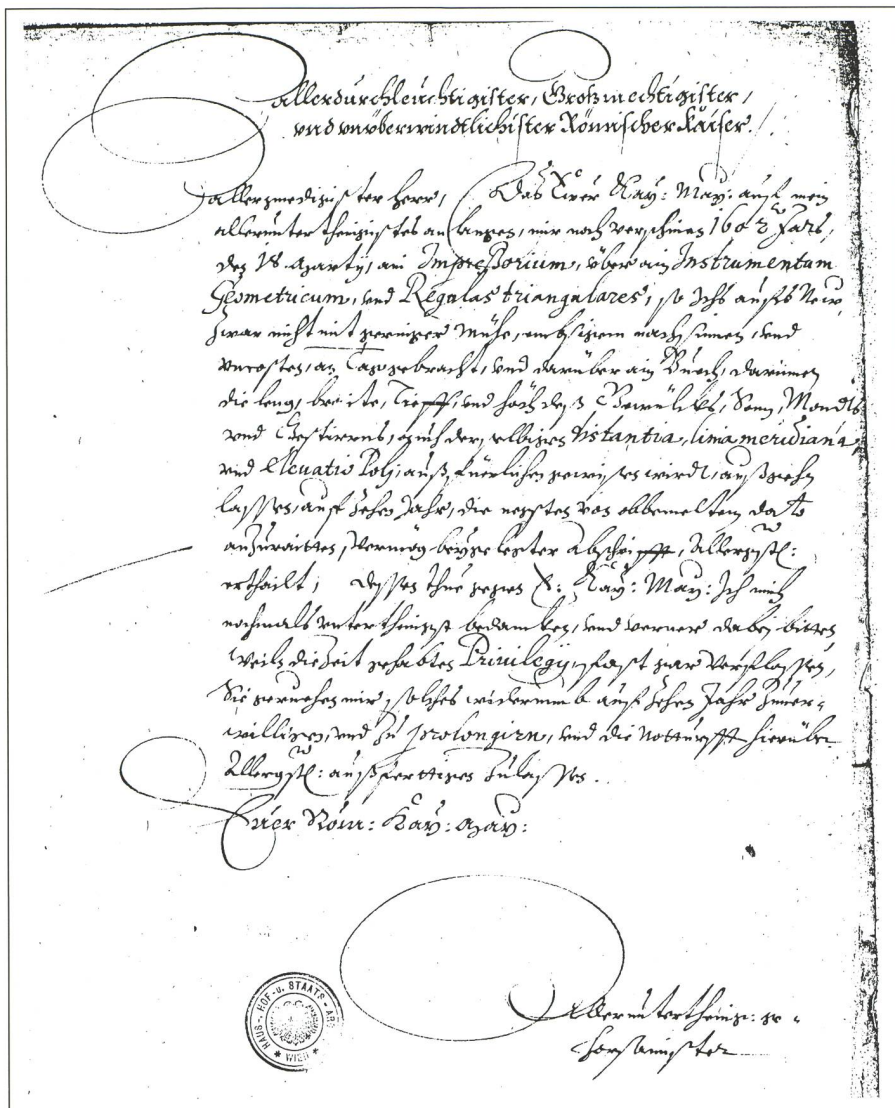 Allerdurchleuchtigister, Großmechtigister,
vnd vnüberwindtlichister Römischer Kaiser.
Allergnedigister Herr, Das Eur Kay: May: auf mein
allerunterthenigstes anlangen, mir noch verschinen 1602 Jars,
den 18 Martij, ain Impressorium, über ain Instrumentum
Geometricum, vnd Regulas triangulares, so Ichs aufs New,
zwar nicht mit geringer Mühe, embsigem nachsinnen, vnd
vncosten, an Tag gebracht, vnd darüber ain Buech, darinnen
die leng, breite, Tieff, vnd höch deß Gewülckes, Sonn, Mondts
vnd Gestirns, auch der selbigen distantia, linia meridiana,
vnd Eleuatio Polj, außfüerlichen gewisen wirdt, außgehn
lassen, auf Zehen Jahr, die negsten von obbemeltem dato
anzuraitten, Vermög beygelegter Abschrifft, Allergnst:
ertheilt; dessen thue gegen E: Kay: May: Ich mich
nochmals vnterthenigst bedancken, vnd verner dabej bitten
Weiln die Zeit gehabten Priuilegij, fast gar Verflossen,
Sie geruehen mir, solches widerumb auf Zehen Jahr Zuuer-
willigen, vnd zu prolongirn, vnd die Notturfft hierüber
Allergst: außferttigen Zulassen.
Euer Röm: Kay: May:
Allerunterthenig: ge-
horsamister
HAUS-, HOF- u. STAATS-ARCHIV
* WIEN *